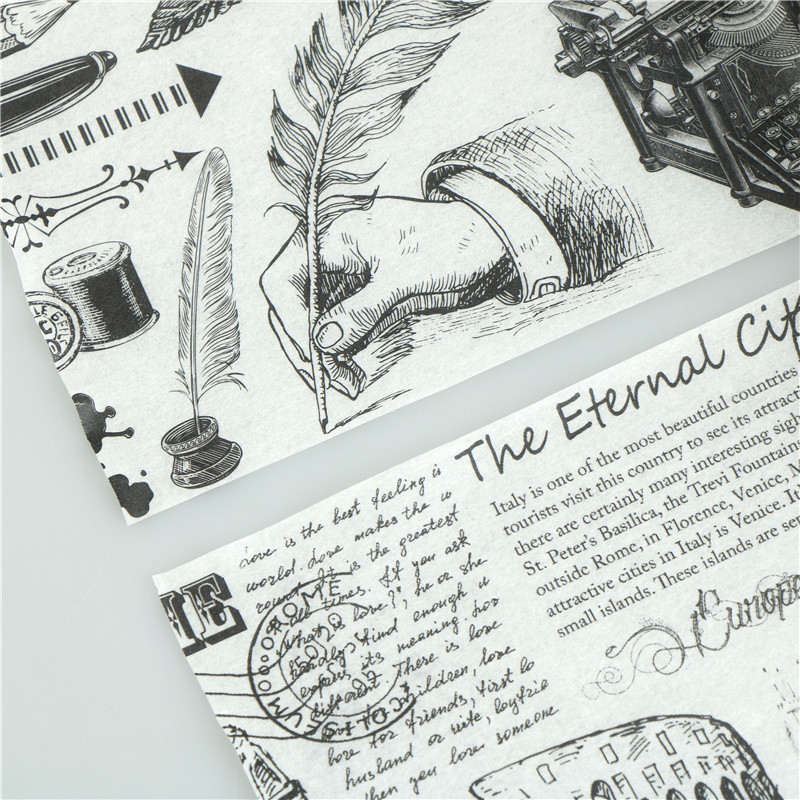 LABEL
The Eternal Cit
Italy is one of the most beautiful countries
tourists visit this country to see its attract
there are certainly many interesting sigh
St. Peter's Basilica, the Trevi Fountain
outside Rome, in Florence, Venice, M
attractive cities in Italy is Venice. It
small islands. These islands are se
Europe
Love is the best feeling is
world. Love makes the w
round. It is the greatest
all times. If you ask
"What is love?", he or she
hardly find enough w
express its meaning. Lov
different. There is love
for children, love
love for friends, first lo
husband or wife, boyfrie
then you love someone
ME
ROME
COLISEUM